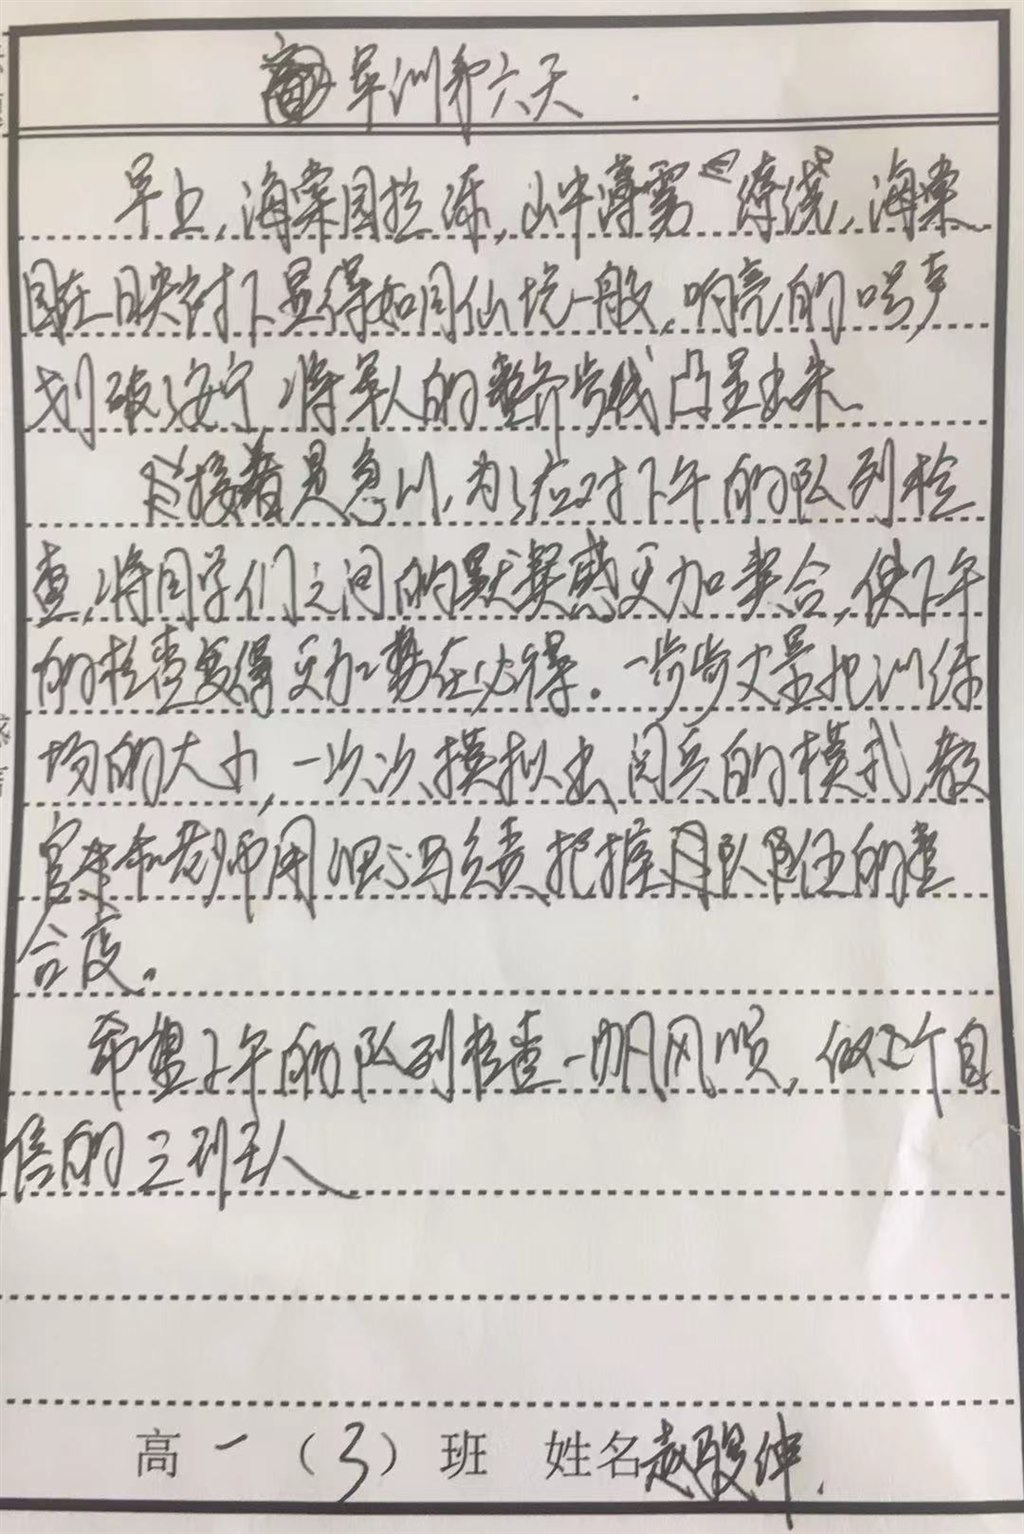 军训第六天.
早上,海棠园拉练,山中薄雾缭绕,海棠
园在日映衬下显得如同仙境一般,响亮的哨声
划破了安宁,将军人的整齐步伐凸显出来.
接着是急训,为了应对下午的队列检
查,将同学们之间的默契感更加契合,使下午
的检查变得更加势在必得。一步步丈量把训练
场的大小,一次次模拟出阅兵的模式,教
官和老师用细心与负责把握队伍的整
合度。
希望下午的队列检查一帆风顺,做个自
信的三班人
高一(3)班 姓名赵骏坤.